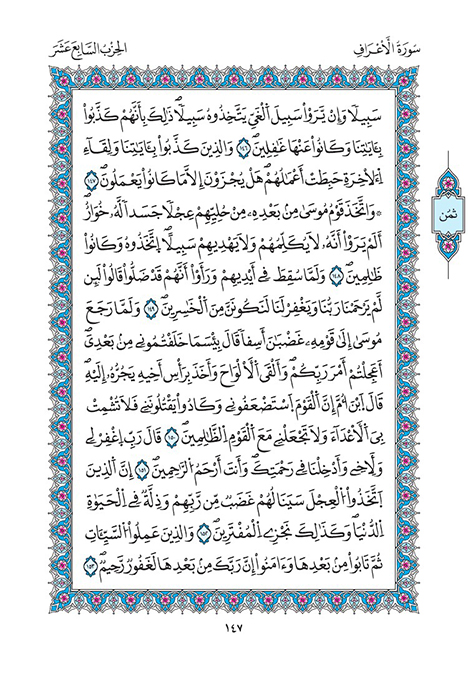 سُورَةُ الْأَعْرَافِ
الْحِزْبُ السَّابِعَ عَشَرَ
سَبِيلًا وَإِنْ يَّرَوْا سَبِيلَ اَلْغَيِّ يَتَّخِذُوهُ سَبِيلًاۖ ذَٰلِكَ بِأَنَّهُمْ كَذَّبُواْ
بِـَٔايَٰتِنَا وَكَانُواْ عَنْهَا غَٰفِلِينَۖ ١٤٦ وَالذِينَ كَذَّبُواْ بِـَٔايَٰتِنَا وَلِقَآءِ
اِ۬لَاخِرَةِ حَبِطَتَ اَعْمَٰلُهُمْ هَلْ يُجْزَوْنَ إِلَّا مَا كَانُواْ يَعْمَلُونَۖ ١٤٧
۞ وَاتَّخَذَ قَوْمُ مُوسَىٰ مِنۢ بَعْدِهِۦ مِنْ حُلِيِّهِمْ عِجْلًا جَسَدًا لَّهُۥ خُوَارٌۖ
اَلَمْ يَرَوَاْ اَنَّهُۥ لَا يُكَلِّمُهُمْ وَلَا يَهْدِيهِمْ سَبِيلًاۖ اِ۪تَّخَذُوهُ وَكَانُواْ
ظَٰلِمِينَۖ ١٤٨ وَلَمَّا سُقِطَ فِےٓ أَيْدِيهِمْ وَرَأَوَاْ اَنَّهُمْ قَد ضَّلُّواْ قَالُواْ لَئِن
لَّمْ يَرْحَمْنَا رَبُّنَا وَيَغْفِرْ لَنَا لَنَكُونَنَّ مِنَ اَلْخَٰسِرِينَۖ ١٤٩ وَلَمَّا رَجَعَ
مُوسَىٰٓ إِلَىٰ قَوْمِهِۦ غَضْبَٰنَ أَسِفًا قَالَ بِيسَمَا خَلَفْتُمُونِے مِنۢ بَعْدِيَۖ
أَعَجِلْتُمُۥٓ أَمْرَ رَبِّكُمْۖ وَأَلْقَى اَلَالْوَاحَ وَأَخَذَ بِرَأْسِ أَخِيهِ يَجُرُّهُۥٓ إِلَيْهِۖ
قَالَ اَبْنَ أُمَّ إِنَّ اَلْقَوْمَ اَ۪سْتَضْعَفُونِے وَكَادُواْ يَقْتُلُونَنِے فَلَا تُشْمِتْ
بِيَ اَلَاعْدَآءَ وَلَا تَجْعَلْنِے مَعَ اَلْقَوْمِ اِ۬لظَّٰلِمِينَۖ ١٥٠ قَالَ رَبِّ اِ۪غْفِرْ لِے
وَلِأَخِے وَأَدْخِلْنَا فِے رَحْمَتِكَۖ وَأَنتَ أَرْحَمُ اُ۬لرَّٰحِمِينَۖ ١٥١ إِنَّ اَلذِينَ
اَ۪تَّخَذُواْ اُ۬لْعِجْلَ سَيَنَالُهُمْ غَضَبٌ مِّن رَّبِّهِمْ وَذِلَّةٌ فِے اِ۬لْحَيَوٰةِ
اِ۬لدُّنْيَاۖ وَكَذَٰلِكَ نَجْزِے اِ۬لْمُفْتَرِينَۖ ١٥٢ وَالذِينَ عَمِلُواْ اُ۬لسَّيِّـَٔاتِ
ثُمَّ تَابُواْ مِنۢ بَعْدِهَا وَءَامَنُوٓاْ إِنَّ رَبَّكَ مِنۢ بَعْدِهَا لَغَفُورٌ رَّحِيمٌۖ ١٥٣
ثُمُن
١٤٧